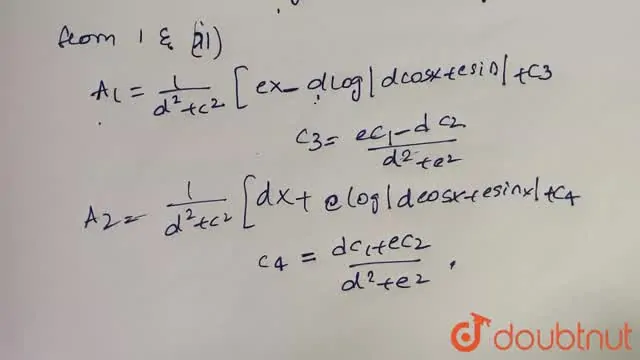 from 1 & (ii)
A1 = 1/d²+c² [ex - dlog|dcosx+esin| + C3
C3 = ec1 - dc2/d²+e²
A2 = 1/d²+c² [dx + elog|dcosx+esinx| + C4
C4 = dc1+ec2/d²+e²
doubtnut